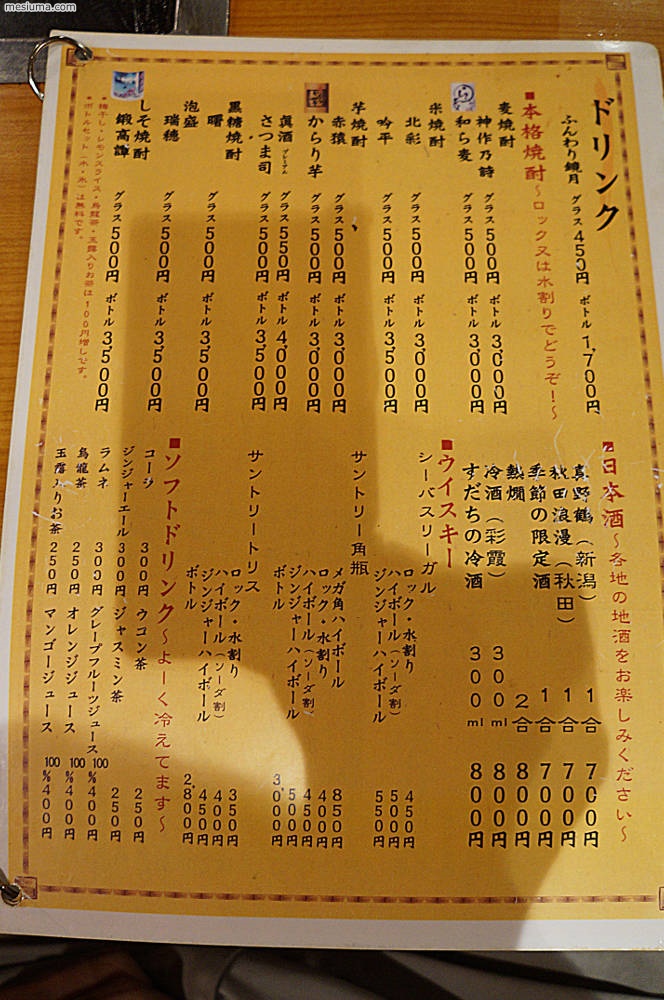 mesluma.com
ドリンク
ふんわり鏡月 グラス 450円 ボトル 1,700円
■本格焼酎～ロック又は水割りでどうぞ！～
麦焼酎
神作乃詩 グラス 500円 ボトル 3,000円
和ら麦 グラス 500円 ボトル 3,000円
米焼酎
北彩 グラス 500円 ボトル 3,000円
吟平 グラス 500円 ボトル 3,500円
芋焼酎
赤猿 グラス 500円 ボトル 3,000円
からり芋 グラス 500円 ボトル 3,000円
眞酒 プレミアム グラス 550円 ボトル 4,000円
さつま司 グラス 500円 ボトル 3,500円
黒糖焼酎
曙 グラス 500円 ボトル 3,500円
泡盛
瑞穂 グラス 500円 ボトル 3,500円
しそ焼酎
鍛高譚 グラス 500円 ボトル 3,500円
●梅干し・レモンスライス・烏龍茶・玉露入りお茶は100円増しです。
●ボトルセット（水・氷）は無料です。
■日本酒～各地の地酒をお楽しみください～
真野鶴（新潟） 1合 700円
秋田浪漫（秋田） 1合 700円
季節の限定酒 1合 700円
熱燗 2合 800円
冷酒（彩霞） 300ml 800円
すだちの冷酒 300ml 800円
■ウイスキー
シーバスリーガル
ロック・水割り 450円
ハイボール（ソーダ割） 500円
ジンジャーハイボール 550円
サントリー角瓶
メガ角ハイボール 850円
ロック・水割り 400円
ハイボール（ソーダ割） 450円
ジンジャーハイボール 500円
ボトル 3,000円
サントリートリス
ロック・水割り 350円
ハイボール（ソーダ割） 400円
ジンジャーハイボール 450円
ボトル 2,800円
■ソフトドリンク～よーく冷えてます～
コーラ 300円 ウコン茶 250円
ジンジャーエール 300円 ジャスミン茶 250円
ラムネ 300円 グレープフルーツジュース 100% 400円
烏龍茶 250円 オレンジジュース 100% 400円
玉露入りお茶 250円 マンゴージュース 100% 400円